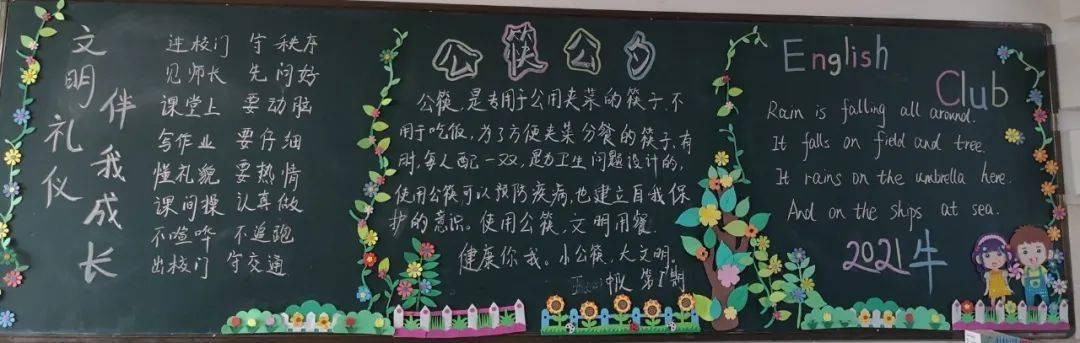 文明礼仪
伴我成长
进校门 守秩序
见师长 先问好
课堂上 要动脑
写作业 要仔细
懂礼貌 要热情
课间操 认真做
不喧哗 不追跑
出校门 守交通
公筷公勺
公筷,是专用于公用夹菜的筷子,不
用于吃饭,为了方便夹菜分餐的筷子,有
时,每人配一双,是为卫生问题设计的,
使用公筷可以预防疾病,也建立自我保
护的意识。使用公筷,文明用餐.
健康你我。小公筷,大文明。
报 第1期
English
Club
Rain is falling all around.
It falls on field and tree.
It rains on the umbrella here.
And on the ships at sea.
2021牛